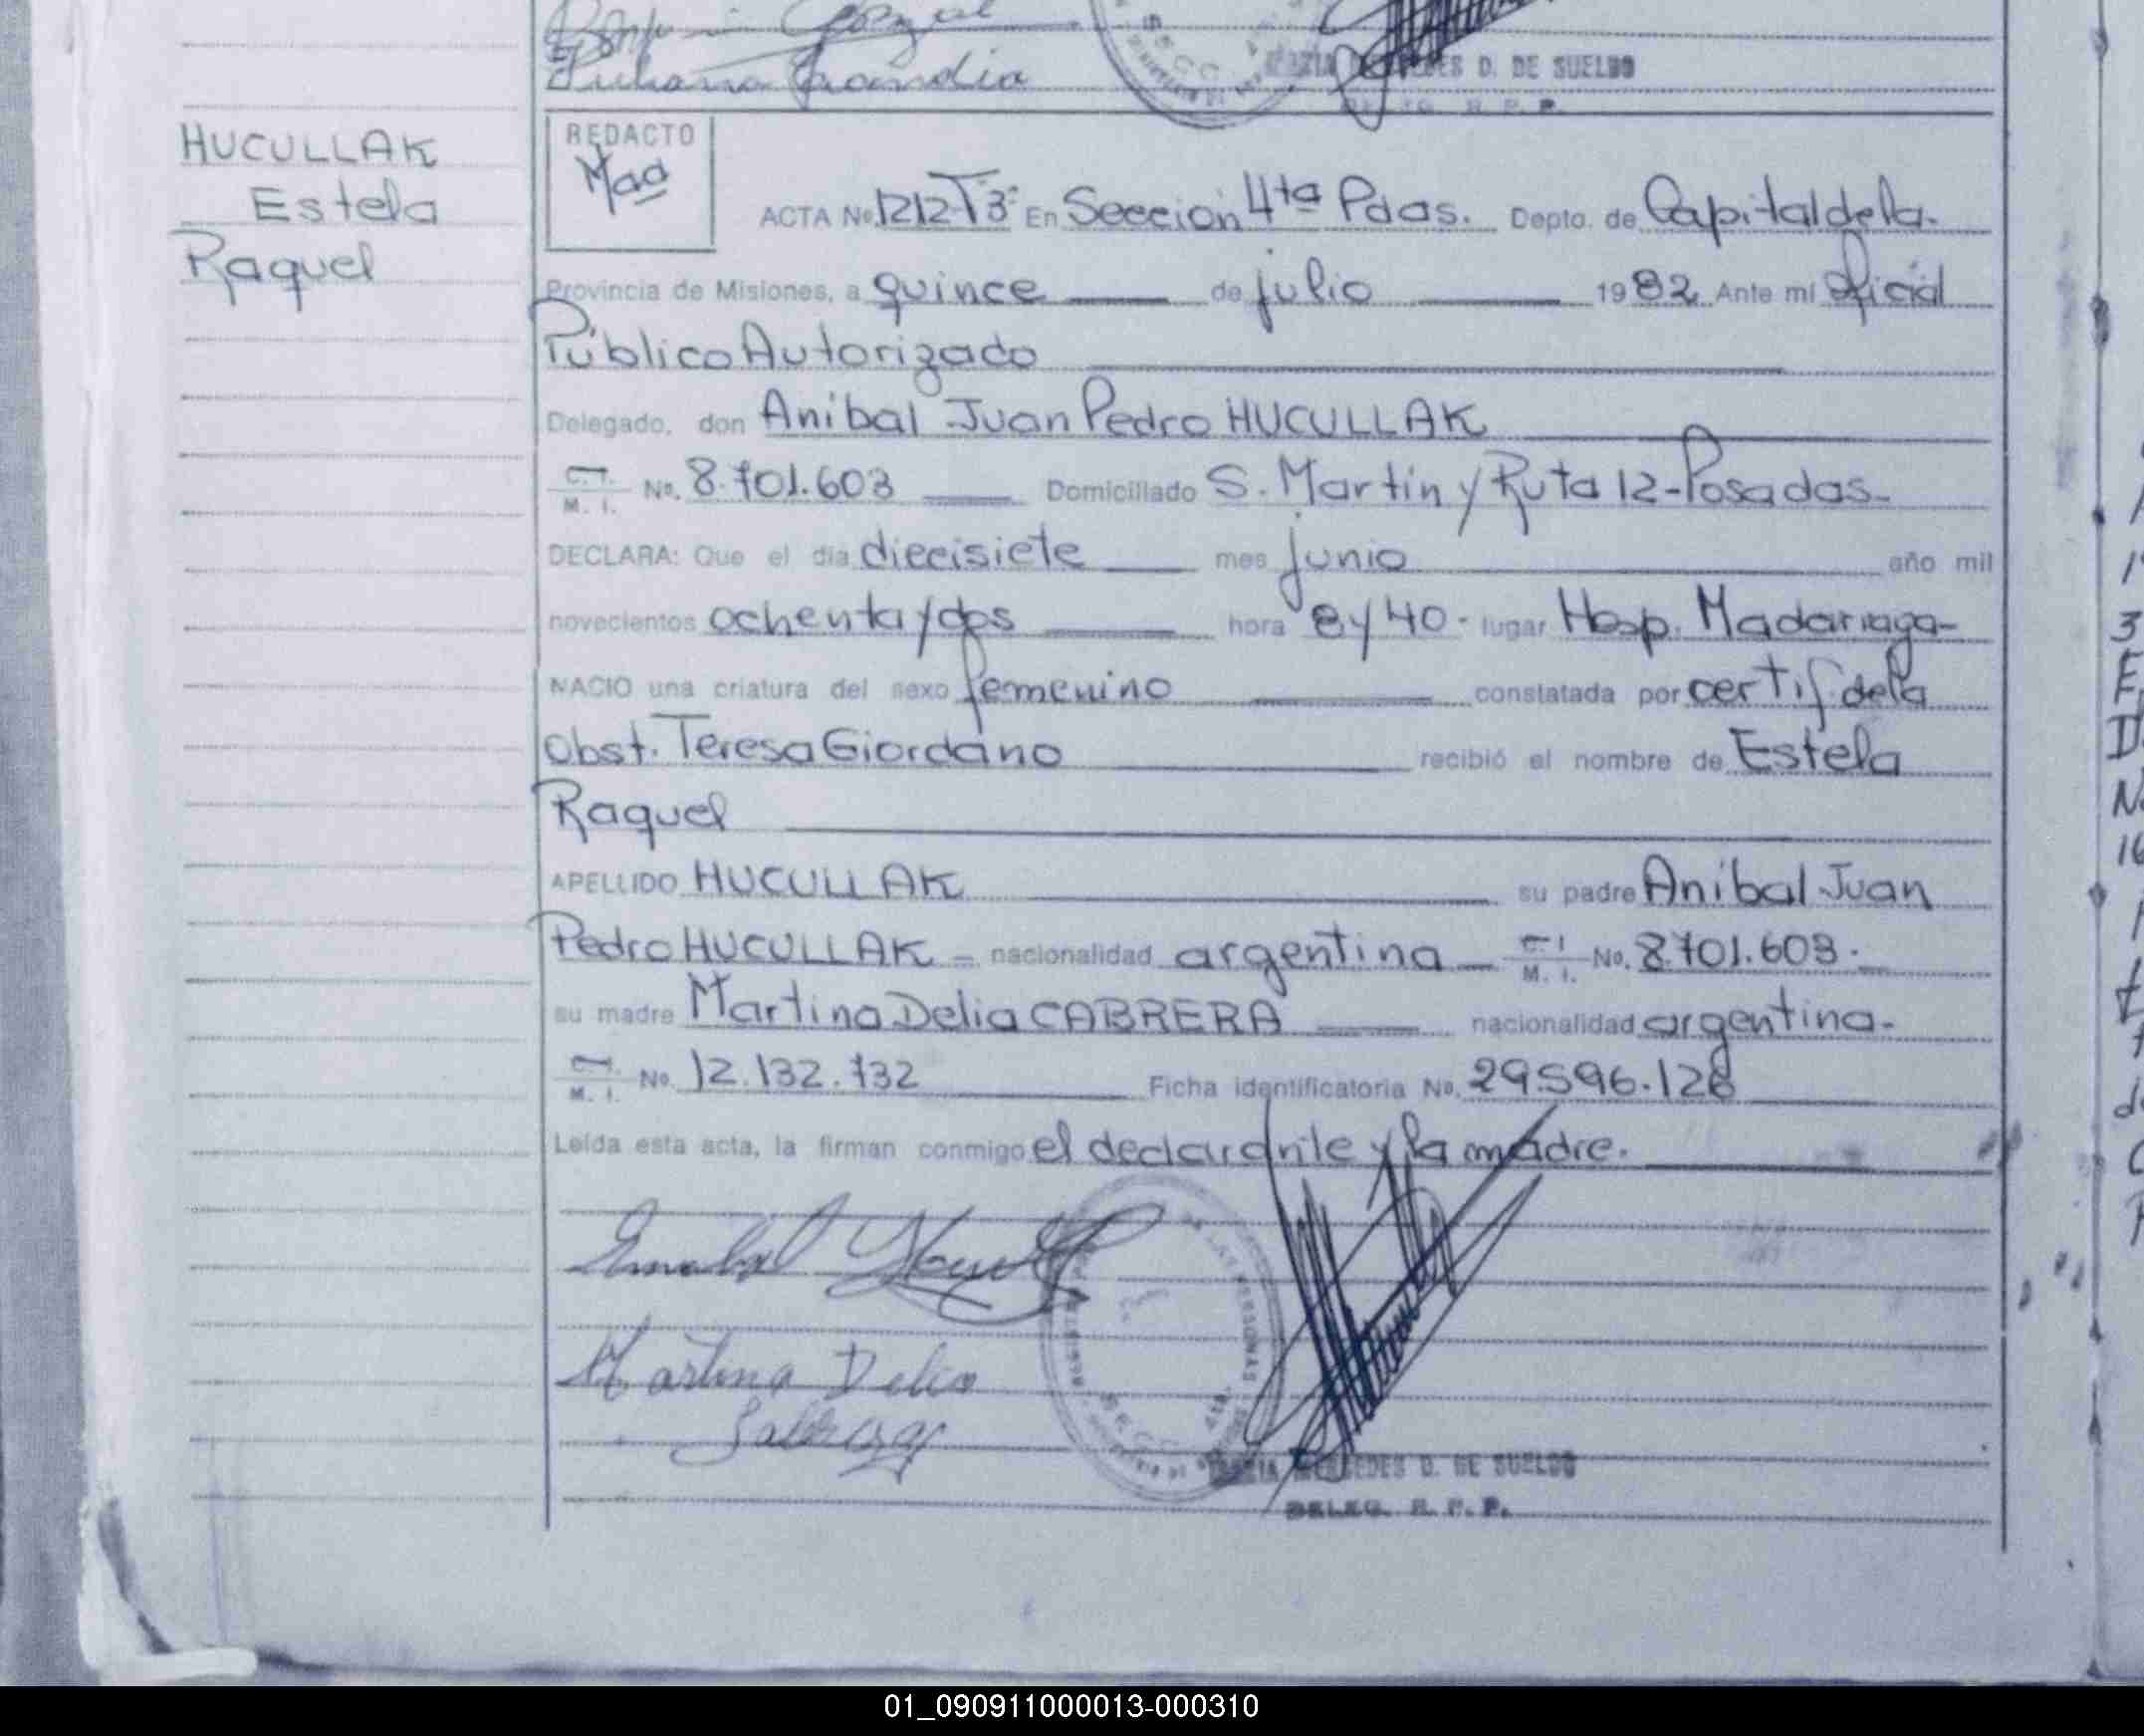 Juliana Grandia
MARIA MERCEDES D. DE SUELDO
DELEG. R. P. P.
HUCULLAK
Estela
Raquel
REDACTO
Maa
ACTA No. 1212 T3º En Sección 4ta Pdas. Depto. de Capital de la.
Provincia de Misiones, a quince de julio 1982 Ante mi Oficial
Público Autorizado
Delegado, don Anibal Juan Pedro HUCULLAK
C.I. M. I. No. 8.701.603 Domiciliado S. Martín y Ruta 12-Posadas-
DECLARA: Que el día diecisiete mes junio año mil
novecientos ochenta y dos hora 8 y 40- lugar Hosp. Madariaga-
NACIO una criatura del sexo femenino constatada por certif. de la
Obst. Teresa Giordano recibió el nombre de Estela
Raquel
APELLIDO HUCULLAK su padre Anibal Juan
Pedro HUCULLAK - nacionalidad argentina - C.I. M. I. No. 8.701.603.-
su madre Martina Delia CABRERA nacionalidad argentina-
C.I. M. I. No. 12.132.732 Ficha identificatoria No. 29.596.126
Leída esta acta, la firman conmigo el declarante y la madre.
Martina Delia
MARIA MERCEDES D. DE SUELDO
DELEG. R. P. P.
01_090911000013-000310